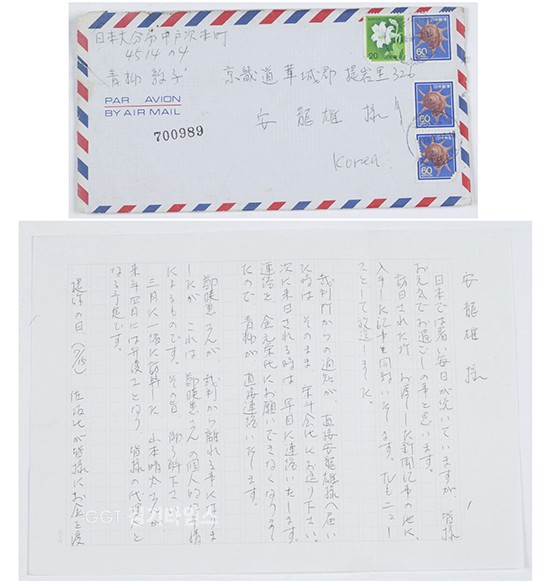 日本大分市中戸次本町
4514の4
青柳敦子
PAR AVION
BY AIR MAIL
700989
20
60
60
60
京畿道華城郡提岩里326
安龍雄様
Korea
安龍雄様
日本では暑い毎日が続いていますが、皆様
お元気でお過ごしの事と思います。
来日された折、お渡しした新聞記事の他に
入手した記事を同封いたします。TVもニュー
スとして放送しました。
裁判所からの通知が、直接安龍雄様へ届い
た時は、そのまま 宋斗会氏にお送り下さい。
次に来日される時は、早目に連絡いたします。
連絡を 金元栄氏にお願いできなくなりまし
たので 青柳が 直接連絡いたします。
鄭暎恵さんが 裁判から離れる事になりま
したが、これは 鄭暎恵さんの個人的な事情
によるものです。その旨 御了解下さい。
三月に一緒に訪韓した 山本晴太さんが
来年四月には弁護士となり 皆様の代理人と
なる予定です。
提訴の日(7/15) 佐治氏が皆様にお金を渡
GGT 경기타임스